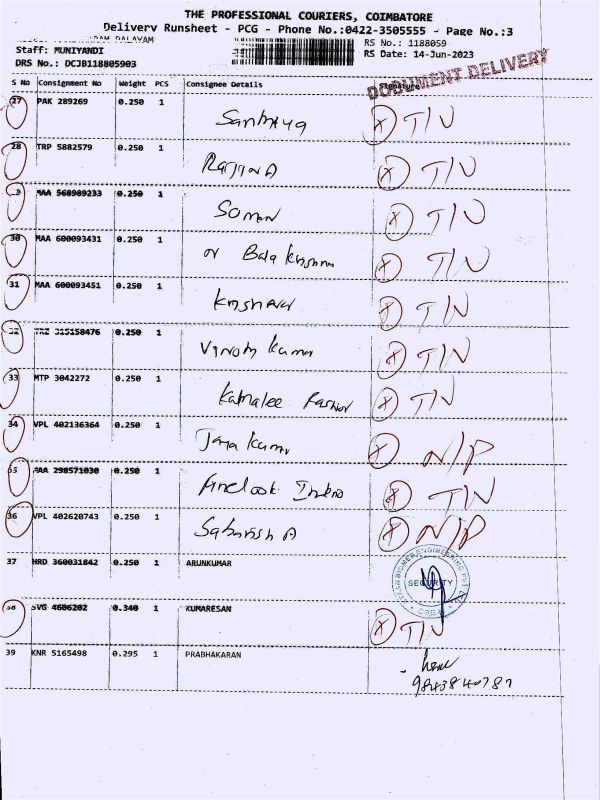 THE PROFESSIONAL COURIERS, COIMBATORE
Delivery Runsheet - PCG - Phone No.:0422-3505555 - Page No.:3
PALAYAM
Staff: MUNIYANDI
RS No.: 1188059
DRS No.: DCJB118805903
RS Date: 14-Jun-2023
DOCUMENT DELIVERY
S No Consignment No Weight PCS Consignee Details Signature
27 PAK 289269 0.250 1 Santhiya X T/N
28 TRP 5882579 0.250 1 X T/N
MAA 568989233 0.250 1 X T/N
30 MAA 600093431 0.250 1 Bala Krishna X T/N
31 MAA 600093451 0.250 1 X T/N
32 0.250 1 Vinoth Kumar X T/N
33 MTP 3042272 0.250 1 Fashion X T/N
34 VPL 402136364 0.250 1 Jaya Kumar X N/P
35 AAA 298571030 0.250 1 X T/N
36 VPL 402620743 0.250 1 Sabarish A X N/P
37 HRD 360031842 0.250 1 ARUNKUMAR SECURITY
38 SVG 4606202 0.340 1 KUMARESAN X T/N
39 KNR 5165498 0.295 1 PRABHAKARAN